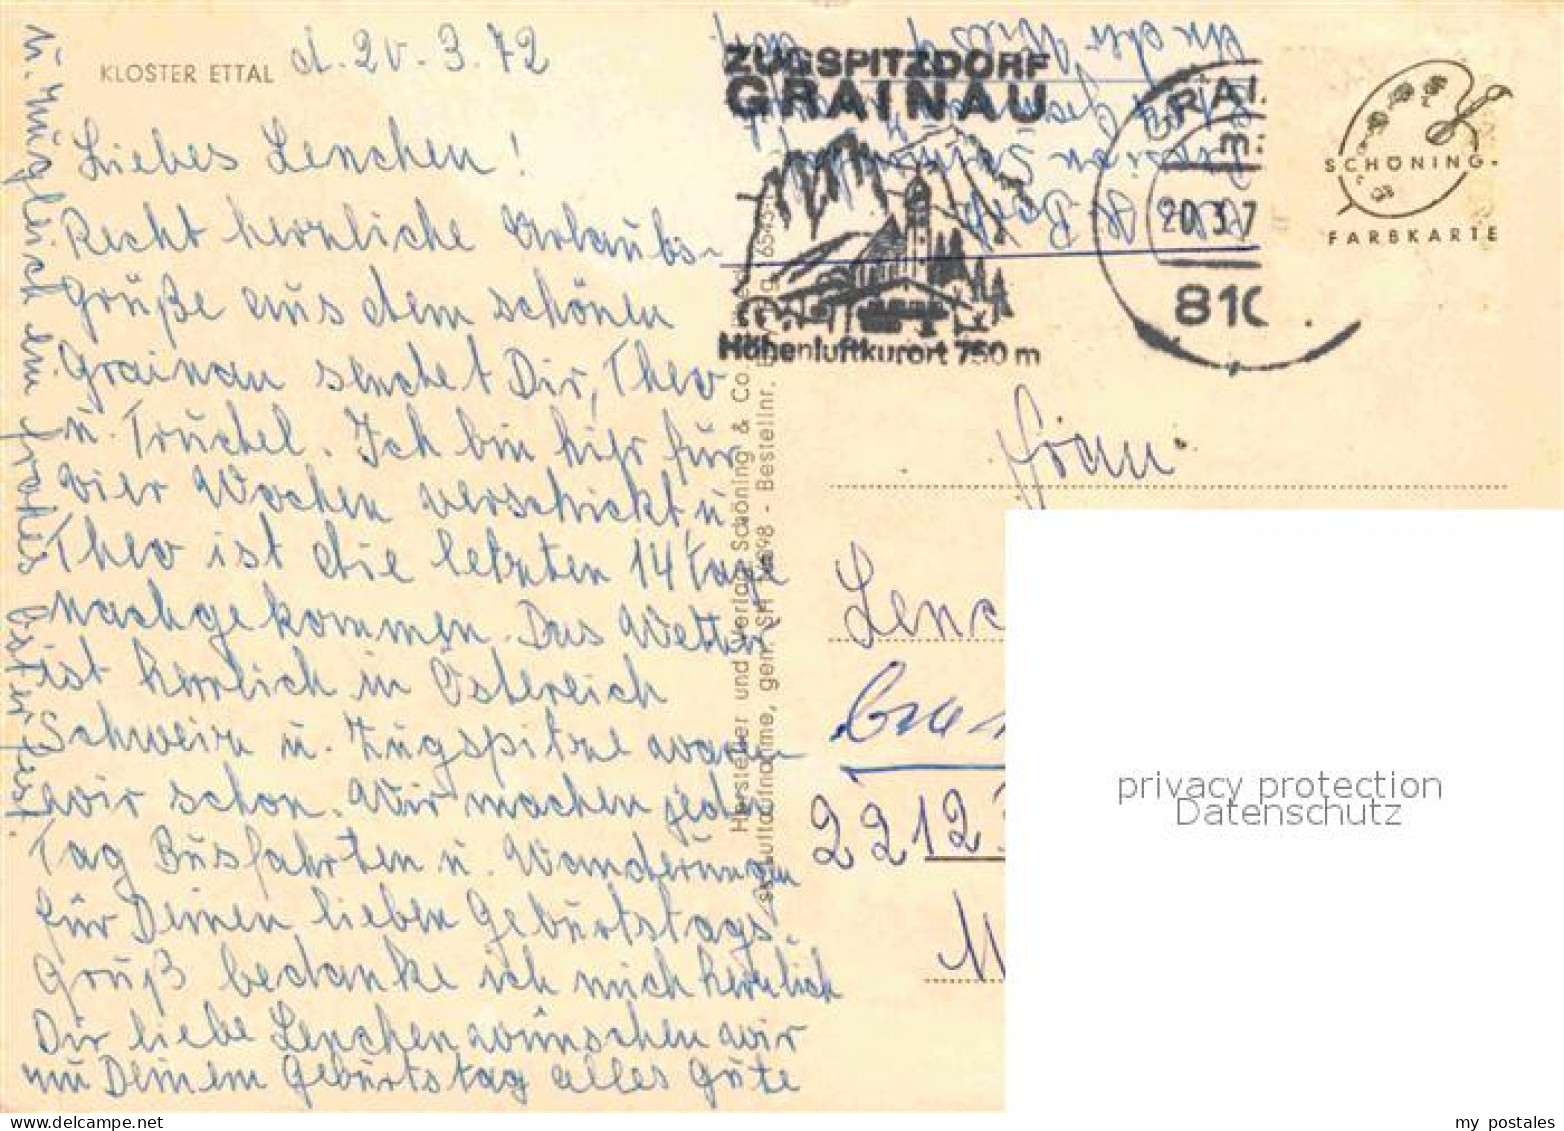 KLOSTER ETTAL
d. 20. 3. 72
Liebes Lenchen!
Recht herzliche Urlaubs-
grüße aus dem schönen
Grainau sendet Dir, Theo
u. Trudel. Ich bin hier für
vier Wochen verschickt u.
Theo ist die letzten 14 Tage
nachgekommen. Das Wetter
ist herrlich in Östereich
Schweiz u. Zugspitze waren
wir schon. Wir machen jede
Tag Busfahrten u. Wanderungen
für Deinen lieben Geburtstags-
Gruß bedanke ich mich herzlich
Dir liebe Lenchen wünschen wir
zu Deinem Geburtstag alles Gute
u. zugleich ein frohes Osterfest.
ZUGSPITZDORF
GRAINAU
Höhenluftkurort 750 m
GRAI
20.3.7
810
SCHÖNING-
FARBKARTE
Hersteller und Verlag: Schöning & Co.
Luftaufnahme, gen. SH - Bestellnr.
Frau
Lenc
2212
M
privacy protection
Datenschutz
my postales